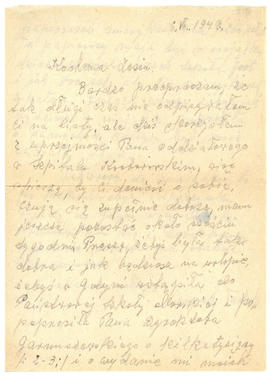 6.VII.1948.
Kochana Zosiu
Bardzo przepraszam, że
tak długi czas nie odpisywałem
Ci na listy, ale dziś skorzystałem
z uprzejmości Pana oddziałowego
w Szpitalu, więc
by Ci donieść o sobie,
czuję się zupełnie dobrze, mam
jeszcze pozostać około sześciu
tygodni. Proszę, żebyś była tak
dobra i jak będziesz na urlopie
żebyś w Gdyni wstąpiła do
Państwowej Szkoły Morskiej i
poprosiła Pana Dyrektora
Garnuszewskiego o kilka
2-3 i o wydanie mi moich